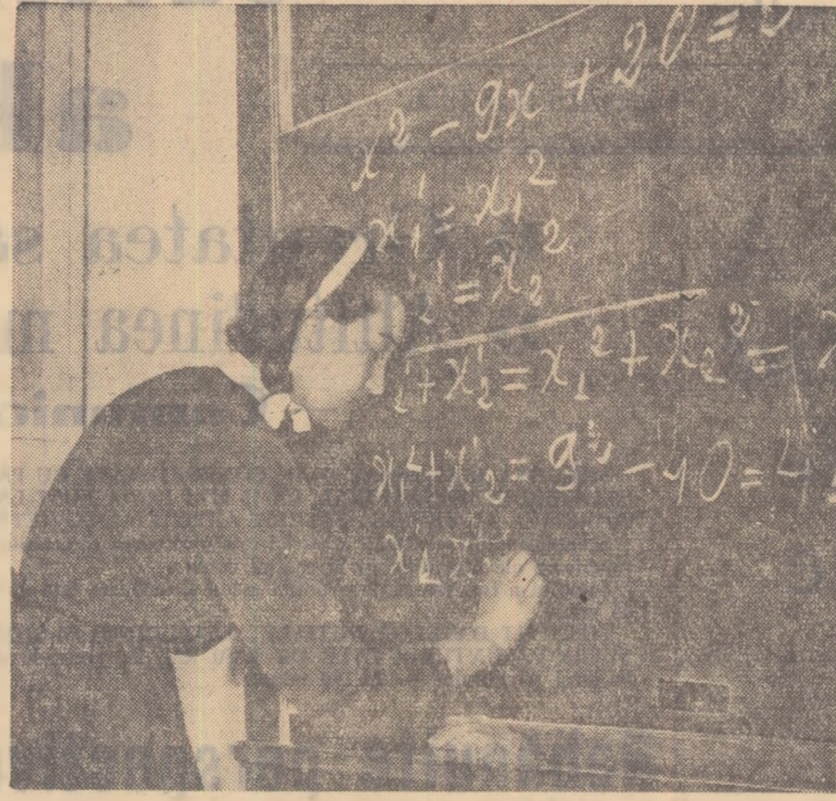 x² - 9x + 20 =
x₁' = x₁²
₂' = x₂²
₁' + x₂' = x₁² + x₂² =
x₁' + x₂' = 9² - 40 = 4
x₁' x